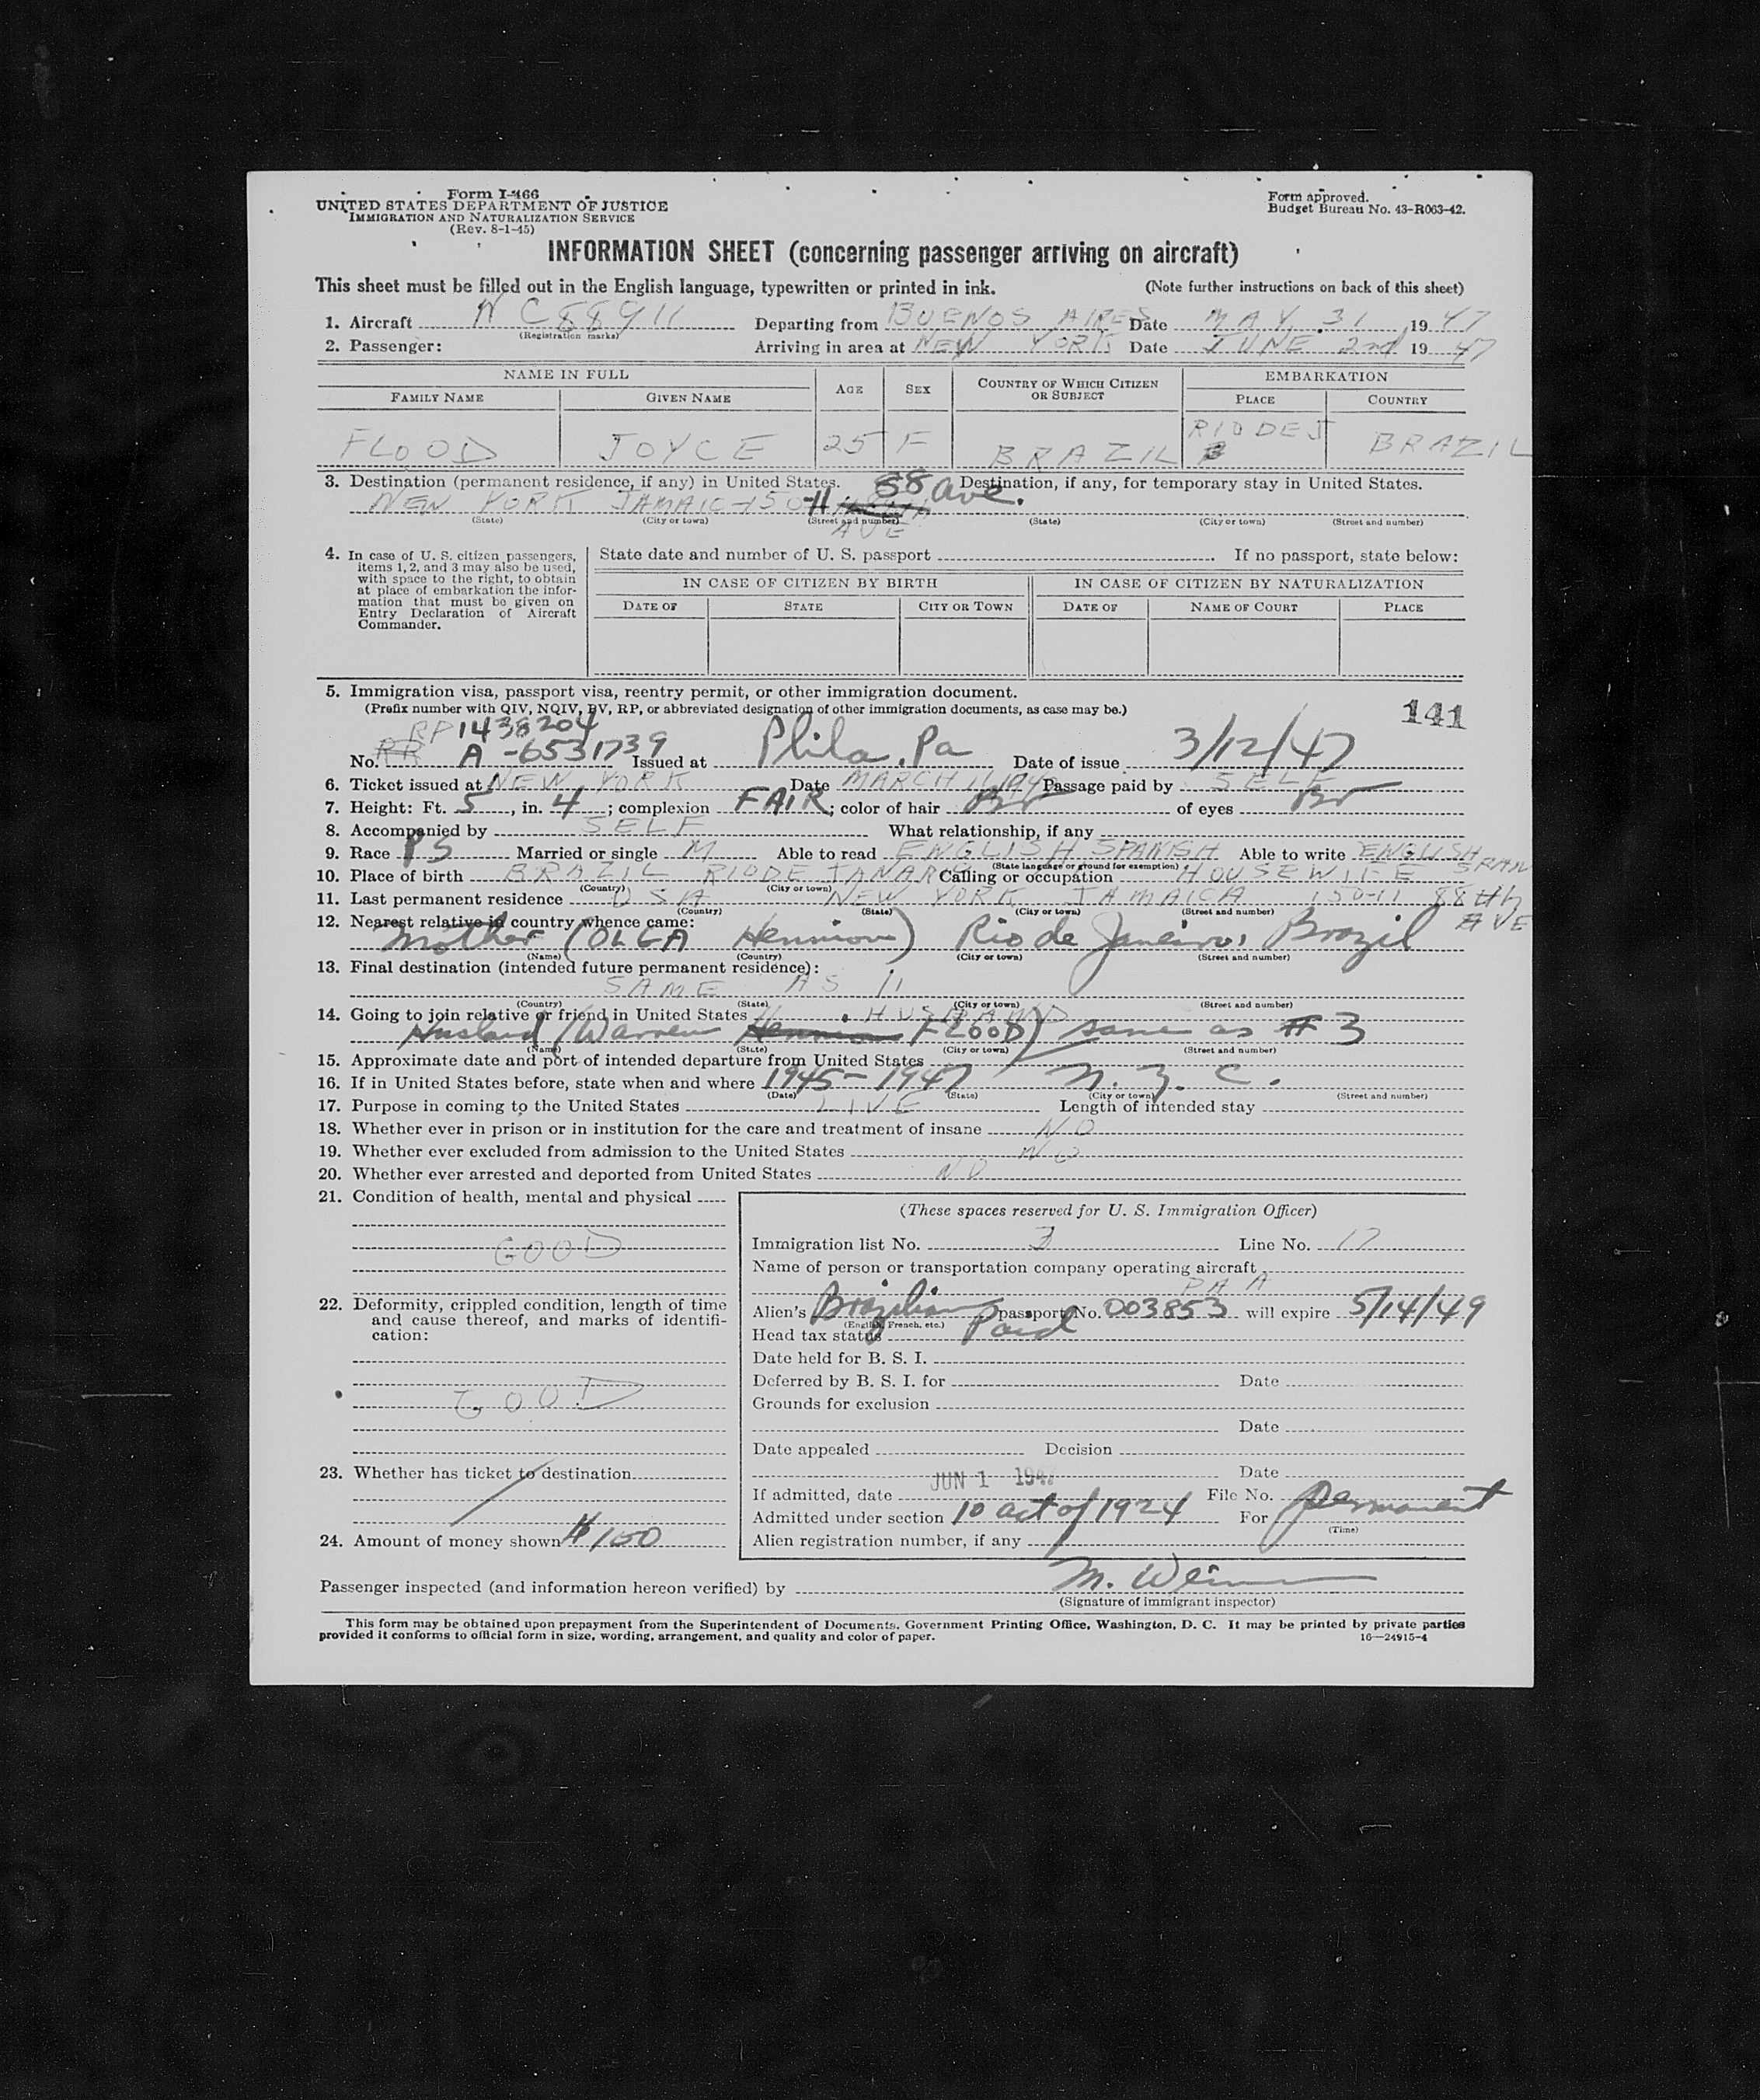 Form I-466
UNITED STATES DEPARTMENT OF JUSTICE
IMMIGRATION AND NATURALIZATION SERVICE
(Rev. 8-1-45)
Form approved.
Budget Bureau No. 43-R063-42.
INFORMATION SHEET (concerning passenger arriving on aircraft)
This sheet must be filled out in the English language, typewritten or printed in ink. (Note further instructions on back of this sheet)
1. Aircraft NC88911 Departing from BUENOS AIRES Date MAY. 31 1947
(Registration marks)
2. Passenger: Arriving in area at NEW YORK Date JUNE 2nd 1947
NAME IN FULL AGE SEX COUNTRY OF WHICH CITIZEN OR SUBJECT EMBARKATION
FAMILY NAME GIVEN NAME PLACE COUNTRY
FLOOD JOYCE 25 F BRAZIL RIO DE J BRAZIL
3. Destination (permanent residence, if any) in United States. 88 ave. Destination, if any, for temporary stay in United States.
NEW YORK JAMAIC 150-11
(State) (City or town) (Street and number) (State) (City or town) (Street and number)
AVE
4. In case of U. S. citizen passengers, items 1, 2, and 3 may also be used, with space to the right, to obtain at place of embarkation the information that must be given on Entry Declaration of Aircraft Commander.
State date and number of U. S. passport If no passport, state below:
IN CASE OF CITIZEN BY BIRTH IN CASE OF CITIZEN BY NATURALIZATION
DATE OF STATE CITY OR TOWN DATE OF NAME OF COURT PLACE
5. Immigration visa, passport visa, reentry permit, or other immigration document.
(Prefix number with QIV, NQIV, PV, RP, or abbreviated designation of other immigration documents, as case may be.)
141
RP 1438204
No. RR A-6531739 Issued at Phila. Pa Date of issue 3/12/47
6. Ticket issued at NEW YORK Date MARCH Passage paid by SELF
7. Height: Ft. 5, in. 4; complexion FAIR; color of hair Br of eyes Br
8. Accompanied by SELF What relationship, if any
9. Race PS Married or single M Able to read ENGLISH SPANISH Able to write ENGLISH SPAN
(State language or ground for exemption)
10. Place of birth BRAZIL RIO DE JANARO Calling or occupation HOUSEWIFE
(Country) (City or town)
11. Last permanent residence USA NEW YORK JAMAICA 150-11 88th AVE
(Country) (State) (City or town) (Street and number)
12. Nearest relative in country whence came:
Mother (OLGA Hennion) Rio de Janeiro, Brazil
(Name) (Country) (City or town) (Street and number)
13. Final destination (intended future permanent residence):
SAME AS 11
(Country) (State) (City or town) (Street and number)
14. Going to join relative or friend in United States HUSBAND
Husband (Warren Hennion FLOOD) same as #3
(Name) (State) (City or town) (Street and number)
15. Approximate date and port of intended departure from United States
16. If in United States before, state when and where 1945-1947 N.Y.C.
(Date) (State) (City or town) (Street and number)
17. Purpose in coming to the United States LIVE Length of intended stay
18. Whether ever in prison or in institution for the care and treatment of insane NO
19. Whether ever excluded from admission to the United States NO
20. Whether ever arrested and deported from United States NO
21. Condition of health, mental and physical
GOOD
22. Deformity, crippled condition, length of time and cause thereof, and marks of identification:
GOOD
23. Whether has ticket to destination
24. Amount of money shown $100
(These spaces reserved for U. S. Immigration Officer)
Immigration list No. 3 Line No. 17
Name of person or transportation company operating aircraft
PAA
Alien's Brazilian passport No. 003853 will expire 5/14/49
(English, French, etc.)
Head tax status Paid
Date held for B. S. I.
Deferred by B. S. I. for Date
Grounds for exclusion
Date
Date appealed Decision
Date
JUN 1 1947
If admitted, date File No.
Admitted under section 10 act of 1924 For permanent
(Time)
Alien registration number, if any
Passenger inspected (and information hereon verified) by M. Weiner
(Signature of immigrant inspector)
This form may be obtained upon prepayment from the Superintendent of Documents, Government Printing Office, Washington, D. C. It may be printed by private parties
provided it conforms to official form in size, wording, arrangement, and quality and color of paper. 16—24915-4